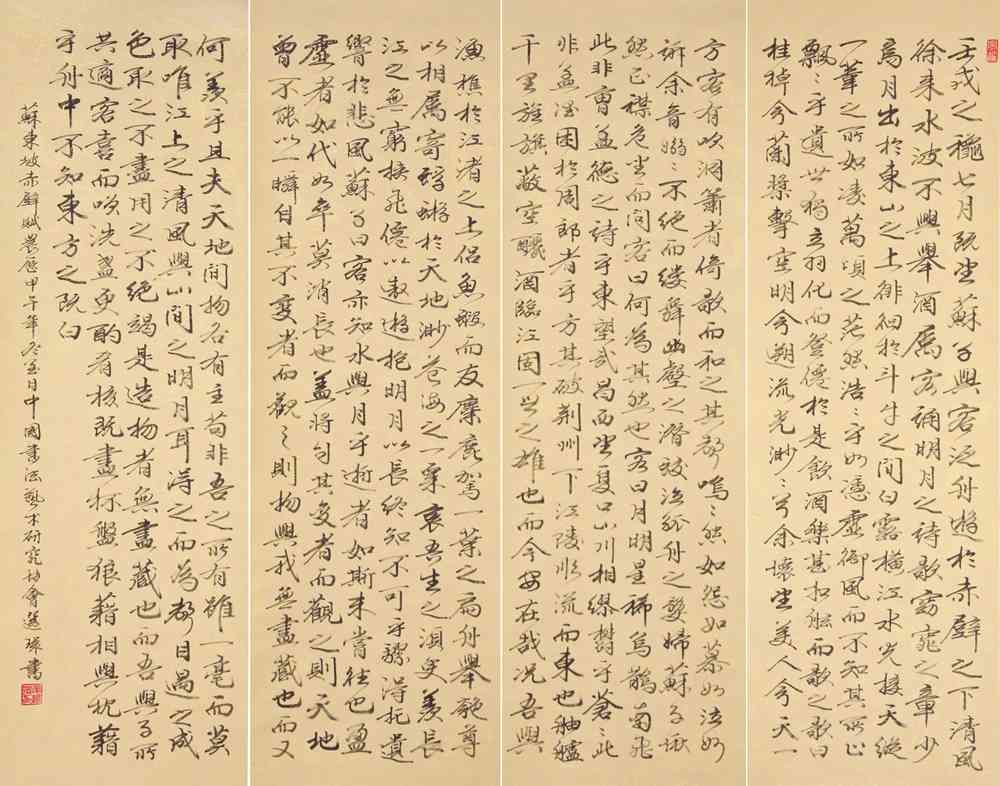 壬戌之穐七月既望蘇子與客泛舟遊於赤壁之下清風
徐来水波不興舉酒属客誦明月之詩歌窈窕之章少
焉月出於東山之上徘徊於斗牛之間白露横江水光接天縱
一葦之所如凌萬頃之茫然浩々乎如憑虚御風而不知其所止
飄々乎遺世獨立羽化而登僊於是飲酒樂甚扣舷而歌之歌曰
桂棹兮蘭槳擊空明兮溯流光渺々兮余懷望美人兮天一
方客有吹洞簫者倚歌而和之其聲嗚々然如怨如慕如泣如
訴余音嫋々不绝而缕舞幽壑之潜蛟泣孤舟之嫠婦蘇子愀
然正襟危坐而问客曰何為其然也客曰月明星稀烏鵲南飛
此非曹孟德之詩乎東望武昌西望夏口山川相繆鬱乎蒼々此
非孟德困於周郎者乎方其破荆州下江陵順流而東也舳艫
千里旌旗蔽空釃酒臨江固一世之雄也而今安在哉况吾與
漁樵於江渚之上侣魚蝦而友麋鹿驾一葉之扁舟舉匏尊
以相属寄蜉蝣於天地渺苍海之一粟哀吾生之湏臾羡長
江之無窮挾飛僊以遨遊抱明月以長终知不可乎驟得托遺
響於悲風蘇子曰客亦知水與月乎逝者如斯未嘗往也盈
虚者如代如卒莫消長也盖將自其变者而觀之则天地
曾不能以一瞬自其不变者而觀之则物與我無盡藏也而又
何羡乎且夫天地間物各有主苟非吾之所有雖一毫而莫
取唯江上之清風與山間之明月耳得之而為聲目遇之成
色取之不盡用之不绝竭是造物者無盡藏也而吾與子所
共適客喜而唉洗盏更酌肴核既盡杯盤狼藉相與枕藉
乎舟中不知東方之既白
蘇東坡赤壁賦農歷甲午年冬至日中國書法藝术研究协會選 書